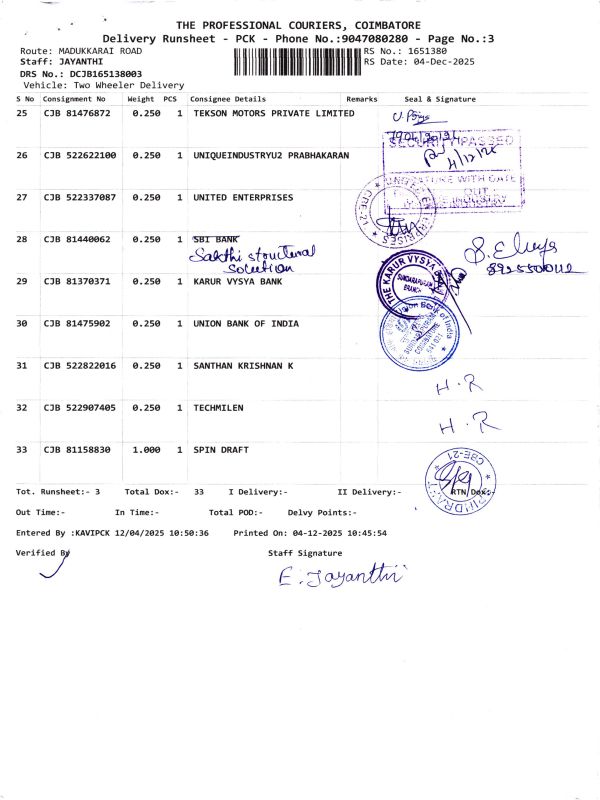 THE PROFESSIONAL COURIERS, COIMBATORE
Delivery Runsheet - PCK - Phone No.:9047080280 - Page No.:3
Route: MADUKKARAI ROAD RS No.: 1651380
Staff: JAYANTHI RS Date: 04-Dec-2025
DRS No.: DCJB165138003
Vehicle: Two Wheeler Delivery
S No Consignment No Weight PCS Consignee Details Remarks Seal & Signature
25 CJB 81476872 0.250 1 TEKSON MOTORS PRIVATE LIMITED
SECURITY PASSED
26 CJB 522622100 0.250 1 UNIQUEINDUSTRYU2 PRABHAKARAN
4/12/25
SIGNATURE WITH DATE
OUT
27 CJB 522337087 0.250 1 UNITED ENTERPRISES
UNITED ENTERPRISES CBE-21
28 CJB 81440062 0.250 1 SBI BANK
Sakthi structural
solution
8925500112
29 CJB 81370371 0.250 1 KARUR VYSYA BANK
THE KARUR VYSYA BANK
SUNDARAPURAM
BRANCH
30 CJB 81475902 0.250 1 UNION BANK OF INDIA
Union Bank of India
COIMBATORE
641 021
31 CJB 522822016 0.250 1 SANTHAN KRISHNAN K
H.R
32 CJB 522907405 0.250 1 TECHMILEN
H.R
33 CJB 81158830 1.000 1 SPIN DRAFT
CBE-21
Tot. Runsheet:- 3 Total Dox:- 33 I Delivery:- II Delivery:- RTN Dox:-
Out Time:- In Time:- Total POD:- Delvy Points:-
Entered By :KAVIPCK 12/04/2025 10:50:36 Printed On: 04-12-2025 10:45:54
Verified By Staff Signature
E. Jayanthi